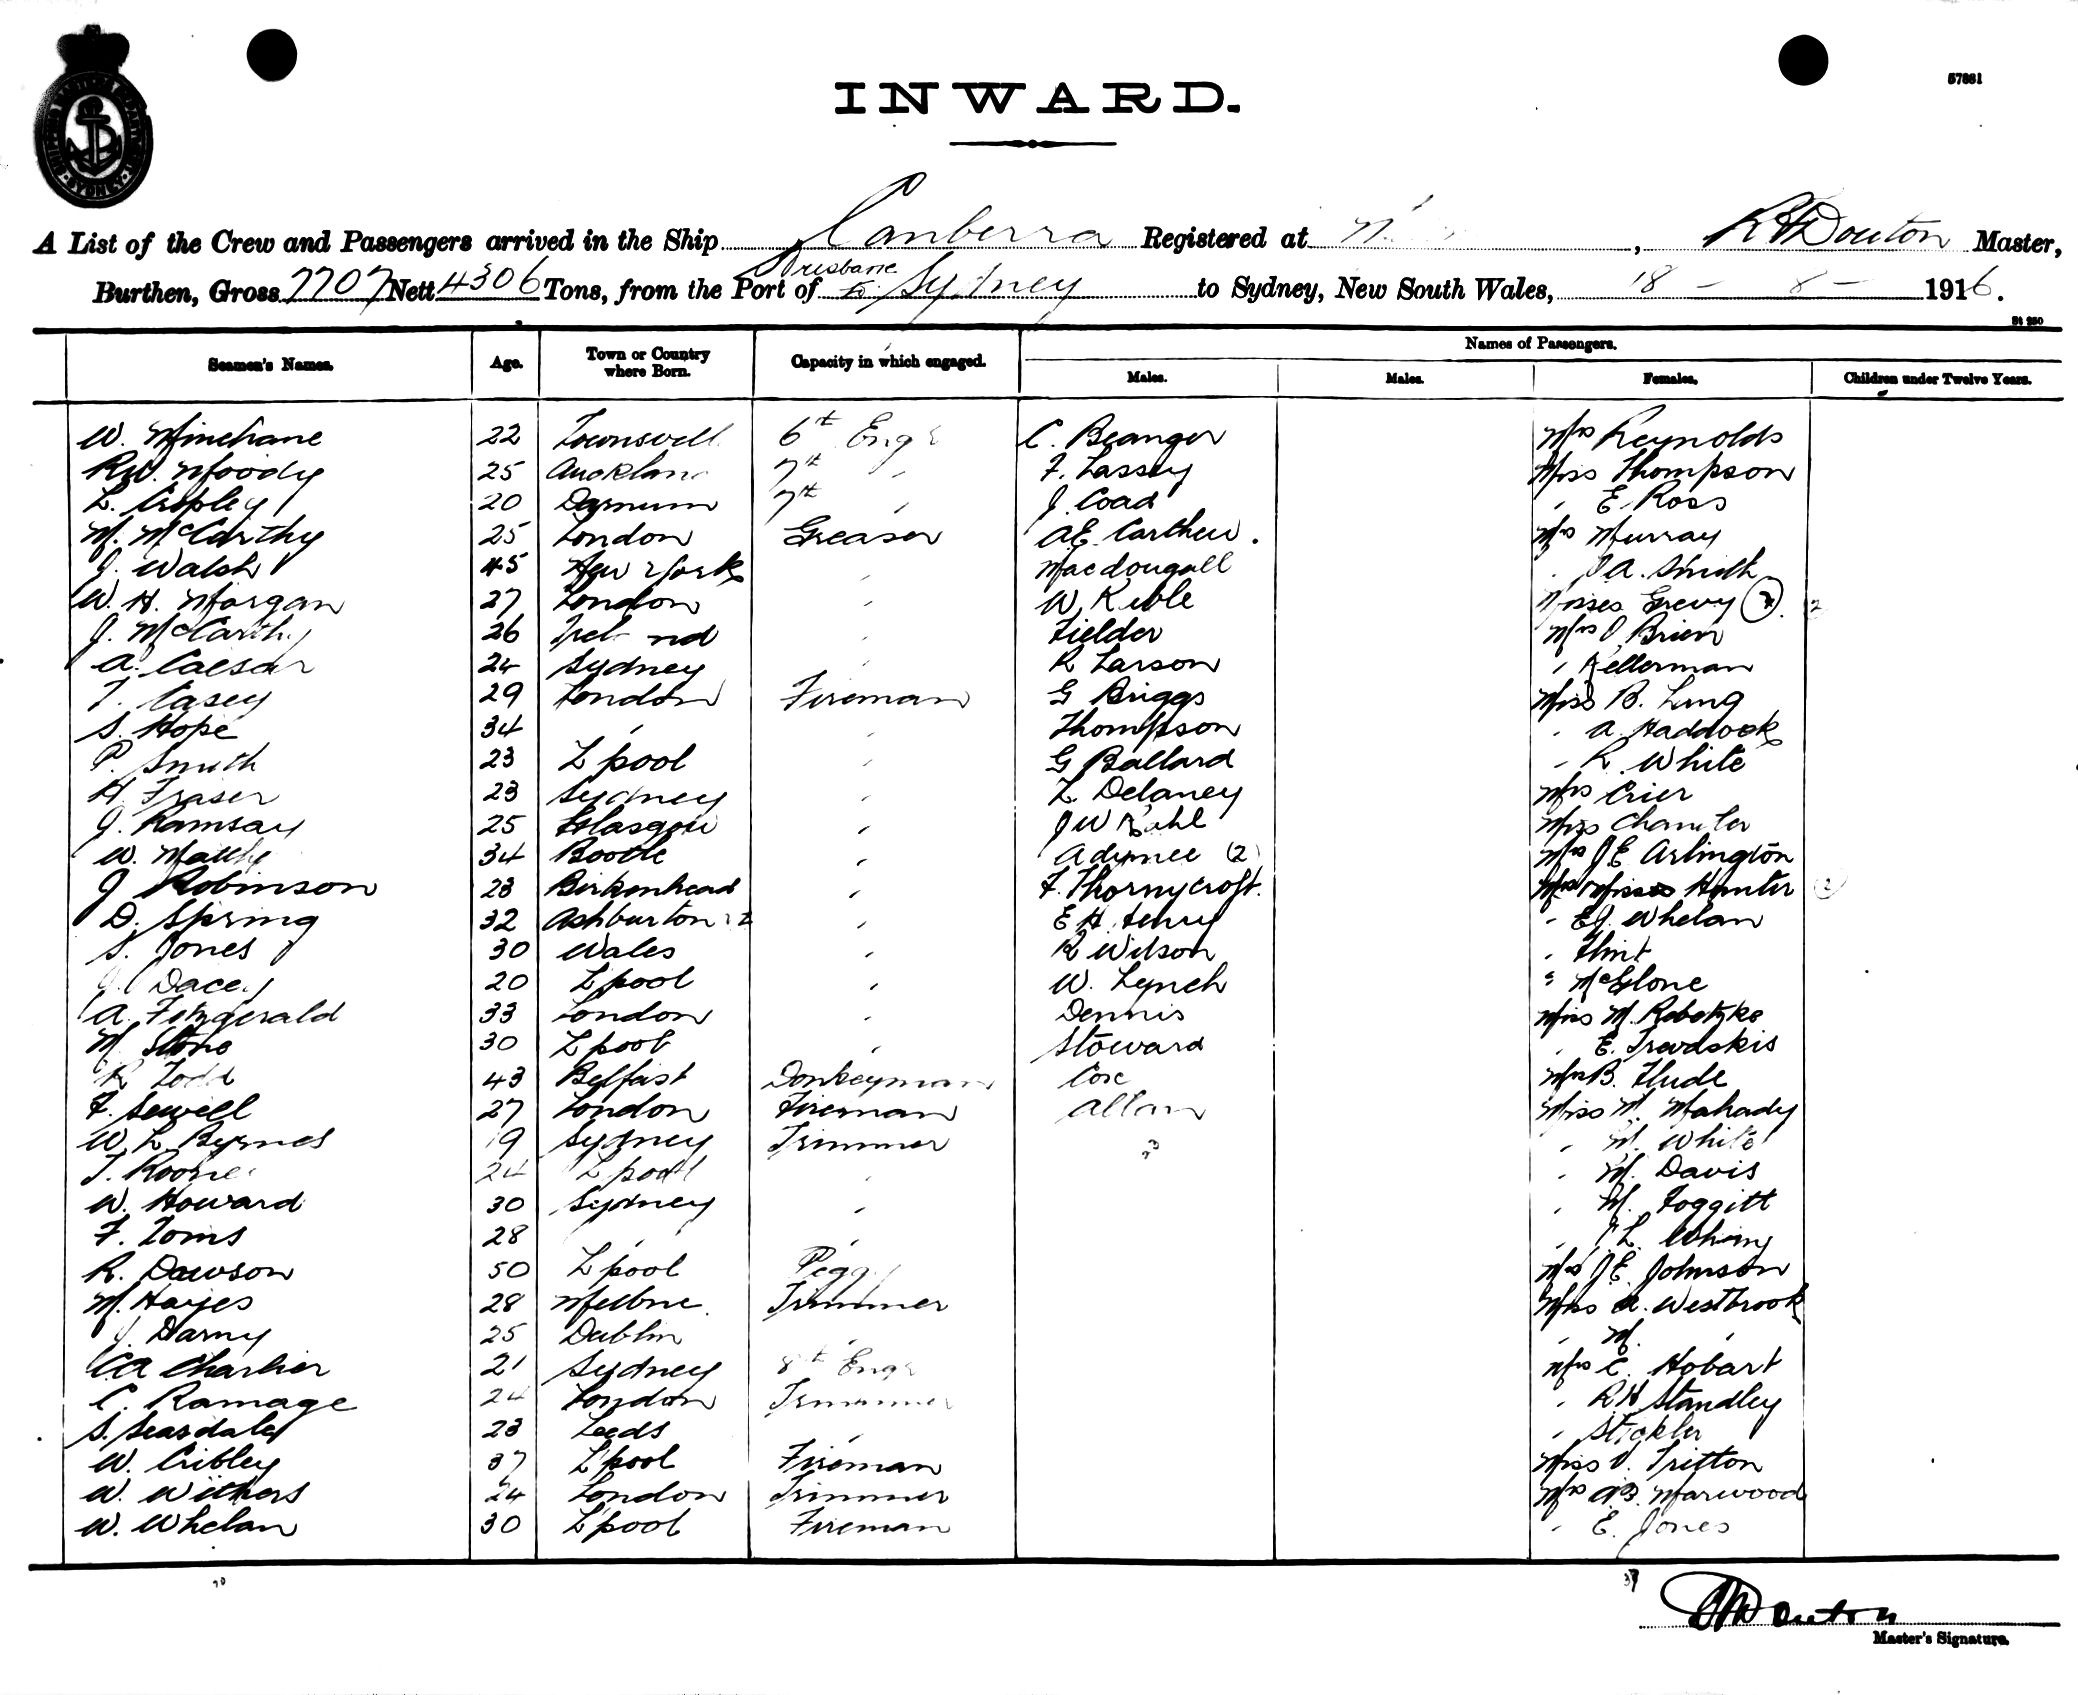 57881
INWARD.
A List of the Crew and Passengers arrived in the Ship Canberra Registered at , R H Douton Master,
Burthen, Gross 7707 Nett 4306 Tons, from the Port of Brisbane to Sydney to Sydney, New South Wales, 18 - 8 - 1916.
St 250
Seamen's Names. Age. Town or Country where Born. Capacity in which engaged. Names of Passengers.
Males. Males. Females. Children under Twelve Years.
W. Minehane 22 Townsvell 6th Engr C. Beanger Mrs Reynolds
R.W. Moody 25 Auckland 7th " F. Lassey Miss Thompson
L. Cropley 20 Darnum 7th " J. Coad " E. Ross
M. McCarthy 25 London Greaser A.E. Carthew. Mrs Murray
J. Walsh 45 New York " Macdougall " J A. Smith
W. H. Morgan 27 London " W. Keble Misses Grevy (2) (2)
J. McCarthy 26 Ireland " Fielder Mrs O'Brien
A. Caesar 24 Sydney " R Larson " Kellerman
T. Casey 29 London Fireman G Briggs Miss B. Lung
S. Hope 34 " " Thompson " A. Haddock
P. Smith 23 L'pool " G Ballard " R. White
H. Fraser 23 Sydney " L. Delaney Mrs Crier
J. Ramsay 25 Glasgow " J W Kahl Miss
W. 34 Bootle " (2) Mrs J E Arlington
J Robinson 23 Birkenhead " F. Thornycroft. Hunter (2)
D. Spring 32 Ashburton " E H. Henry " E J. Whelan
S. Jones 30 Wales " R Wilson " Flint
Dacey 20 L'pool " W. Lynch " McGlone
A. Fitzgerald 33 London " Dennis Miss M. Robotzke
M Stone 30 L'pool " Stoward " E. Trevaskis
R Todd 43 Belfast Donkeyman Cox Mrs B. Flude
F. Sewell 27 London Fireman Allan Miss M. Mahady
W. L. Byrnes 19 Sydney Trimmer " M. White
T. Rooney 24 L'pool " " M. Davis
W. Howard 30 Sydney " " M. Foggitt
F. Toms 28 " " " L.
R. Dawson 50 L'pool Peggy Mrs J.E. Johnson
M. Hayes 28 Melbne. Trimmer Miss A. Westbrook
J. Harny 25 Dublin " " M. "
C A Charlier 21 Sydney 8th Engr Mrs C. Hobart
C. Ramage 24 London Trimmer " R H Standley
S. Seasdale 23 Leeds " " Stickler
W. Cribley 37 L'pool Fireman Miss V. Tritton
W. Withers 24 London Trimmer Mrs A.B. Marwood
W. Whelan 30 L'pool Fireman " E. Jones
37
R H Douton
Master's Signature.